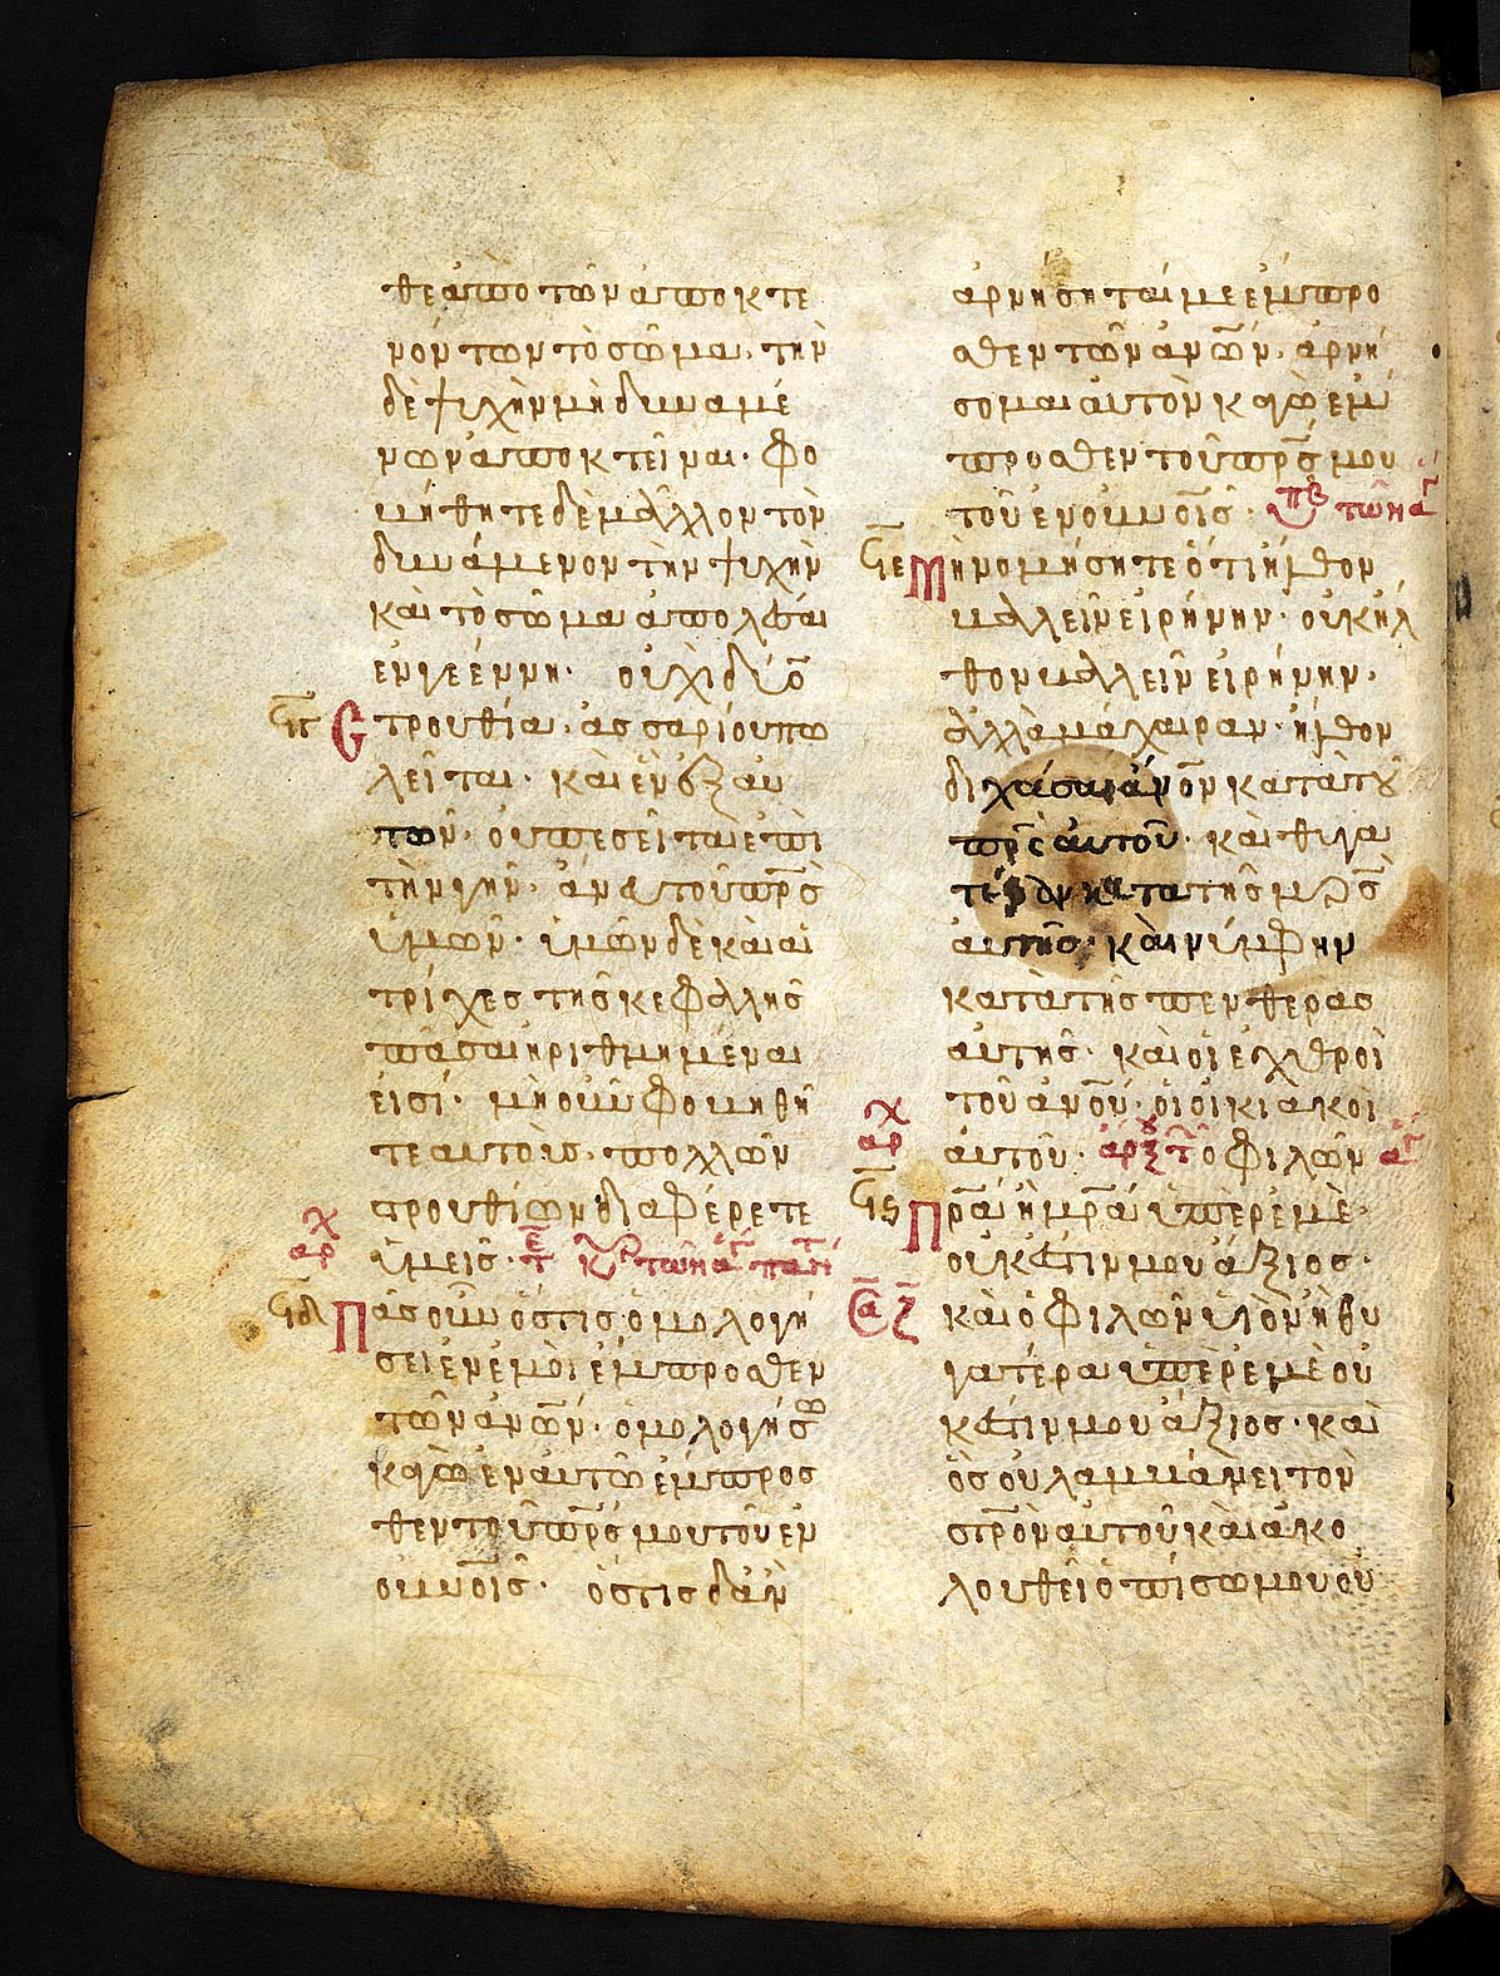 θε ἀπὸ τῶν ἀποκτε
νόντων τὸ σῶμα· τὴν
δὲ ψυχὴν μὴ δυναμέ
νων ἀποκτεῖναι· φο
βήθητε δὲ μᾶλλον τὸν
δυνάμενον τὴν ψυχὴν
καὶ τὸ σῶμα ἀπολέσαι
ἐν γεέννῃ· οὐχὶ δύο
στρουθία· ἀσσαρίου πω
λεῖται· καὶ ἓν ἐξ αυ
τῶν· οὐ πεσεῖται ἐπὶ
τὴν γῆν· ἄνευ τοῦ π̅ρ̅ς̅
ὑμῶν· ὑμῶν δὲ καὶ αἱ
τρίχες τῆς κεφαλῆς
πᾶσαι ἠριθμημέναι
εἰσί· μὴ οὖν φοβηθῆ
τε αυτούς· πολλῶν
στρουθίων διαφέρετε
ὑμεῖς·
Πᾶς οὖν ὅστις ὁμολογή
σει ἐν ἐμοὶ ἔμπροσθεν
τῶν ἀ̅ν̅ω̅ν̅· ὁμολογήσω
κἀγὼ ἐν αὐτῷ ἔμπροσ
θεν τοῦ π̅ρ̅ς̅ μου τοῦ ἐν
ο̅υ̅ν̅ο̅ι̅ς̅· ὅστις δ' ἂν
ἀρνήσηταί με ἔμπρο
σθεν τῶν ἀ̅ν̅ω̅ν̅· ἀρνή
σομαι αὐτὸν κἀγὼ ἔμ
προσθεν τοῦ π̅ρ̅ς̅ μου
τοῦ ἐν ο̅υ̅ν̅ο̅ι̅ς̅·
Μὴ νομήσητε ὅτι ἦλθον
βαλλεῖν εἰρήνην· οὐκ ἦλ
θον βαλλεῖν εἰρήνην·
ἀλλὰ μάχαιραν· ἦλθον
διχάσαι ἄ̅ν̅ο̅ν̅ κατὰ τοῦ
π̅ρ̅ς̅ αὐτοῦ· καὶ θυγα
τέραν κατὰ τῆς μ̅ρ̅ς̅
αὐτῆς· καὶ νύμφην
κατὰ τῆς πενθερᾶς
αὐτῆς· καὶ οἱ ἐχθροὶ
τοῦ ἀ̅ν̅ο̅υ̅· οἱ οἰκιακοὶ
αὐτοῦ· ὁ φιλῶν
π̅ρ̅α̅ ἢ μ̅ρ̅α̅ ὑπὲρ ἐμὲ·
οὐκ ἔστιν μου ἄξιος·
καὶ ὁ φιλῶν υἱὸν ἢ θυ
γατέρα ὑπὲρ ἐμὲ οὐ
κ ἔστιν μου ἄξιος· καὶ
ὃς οὐ λαμβάνει τὸν
σ̅τ̅ρ̅ὸν αὐτοῦ καὶ ἀκο
λουθεῖ ὀπίσω μου οὐ